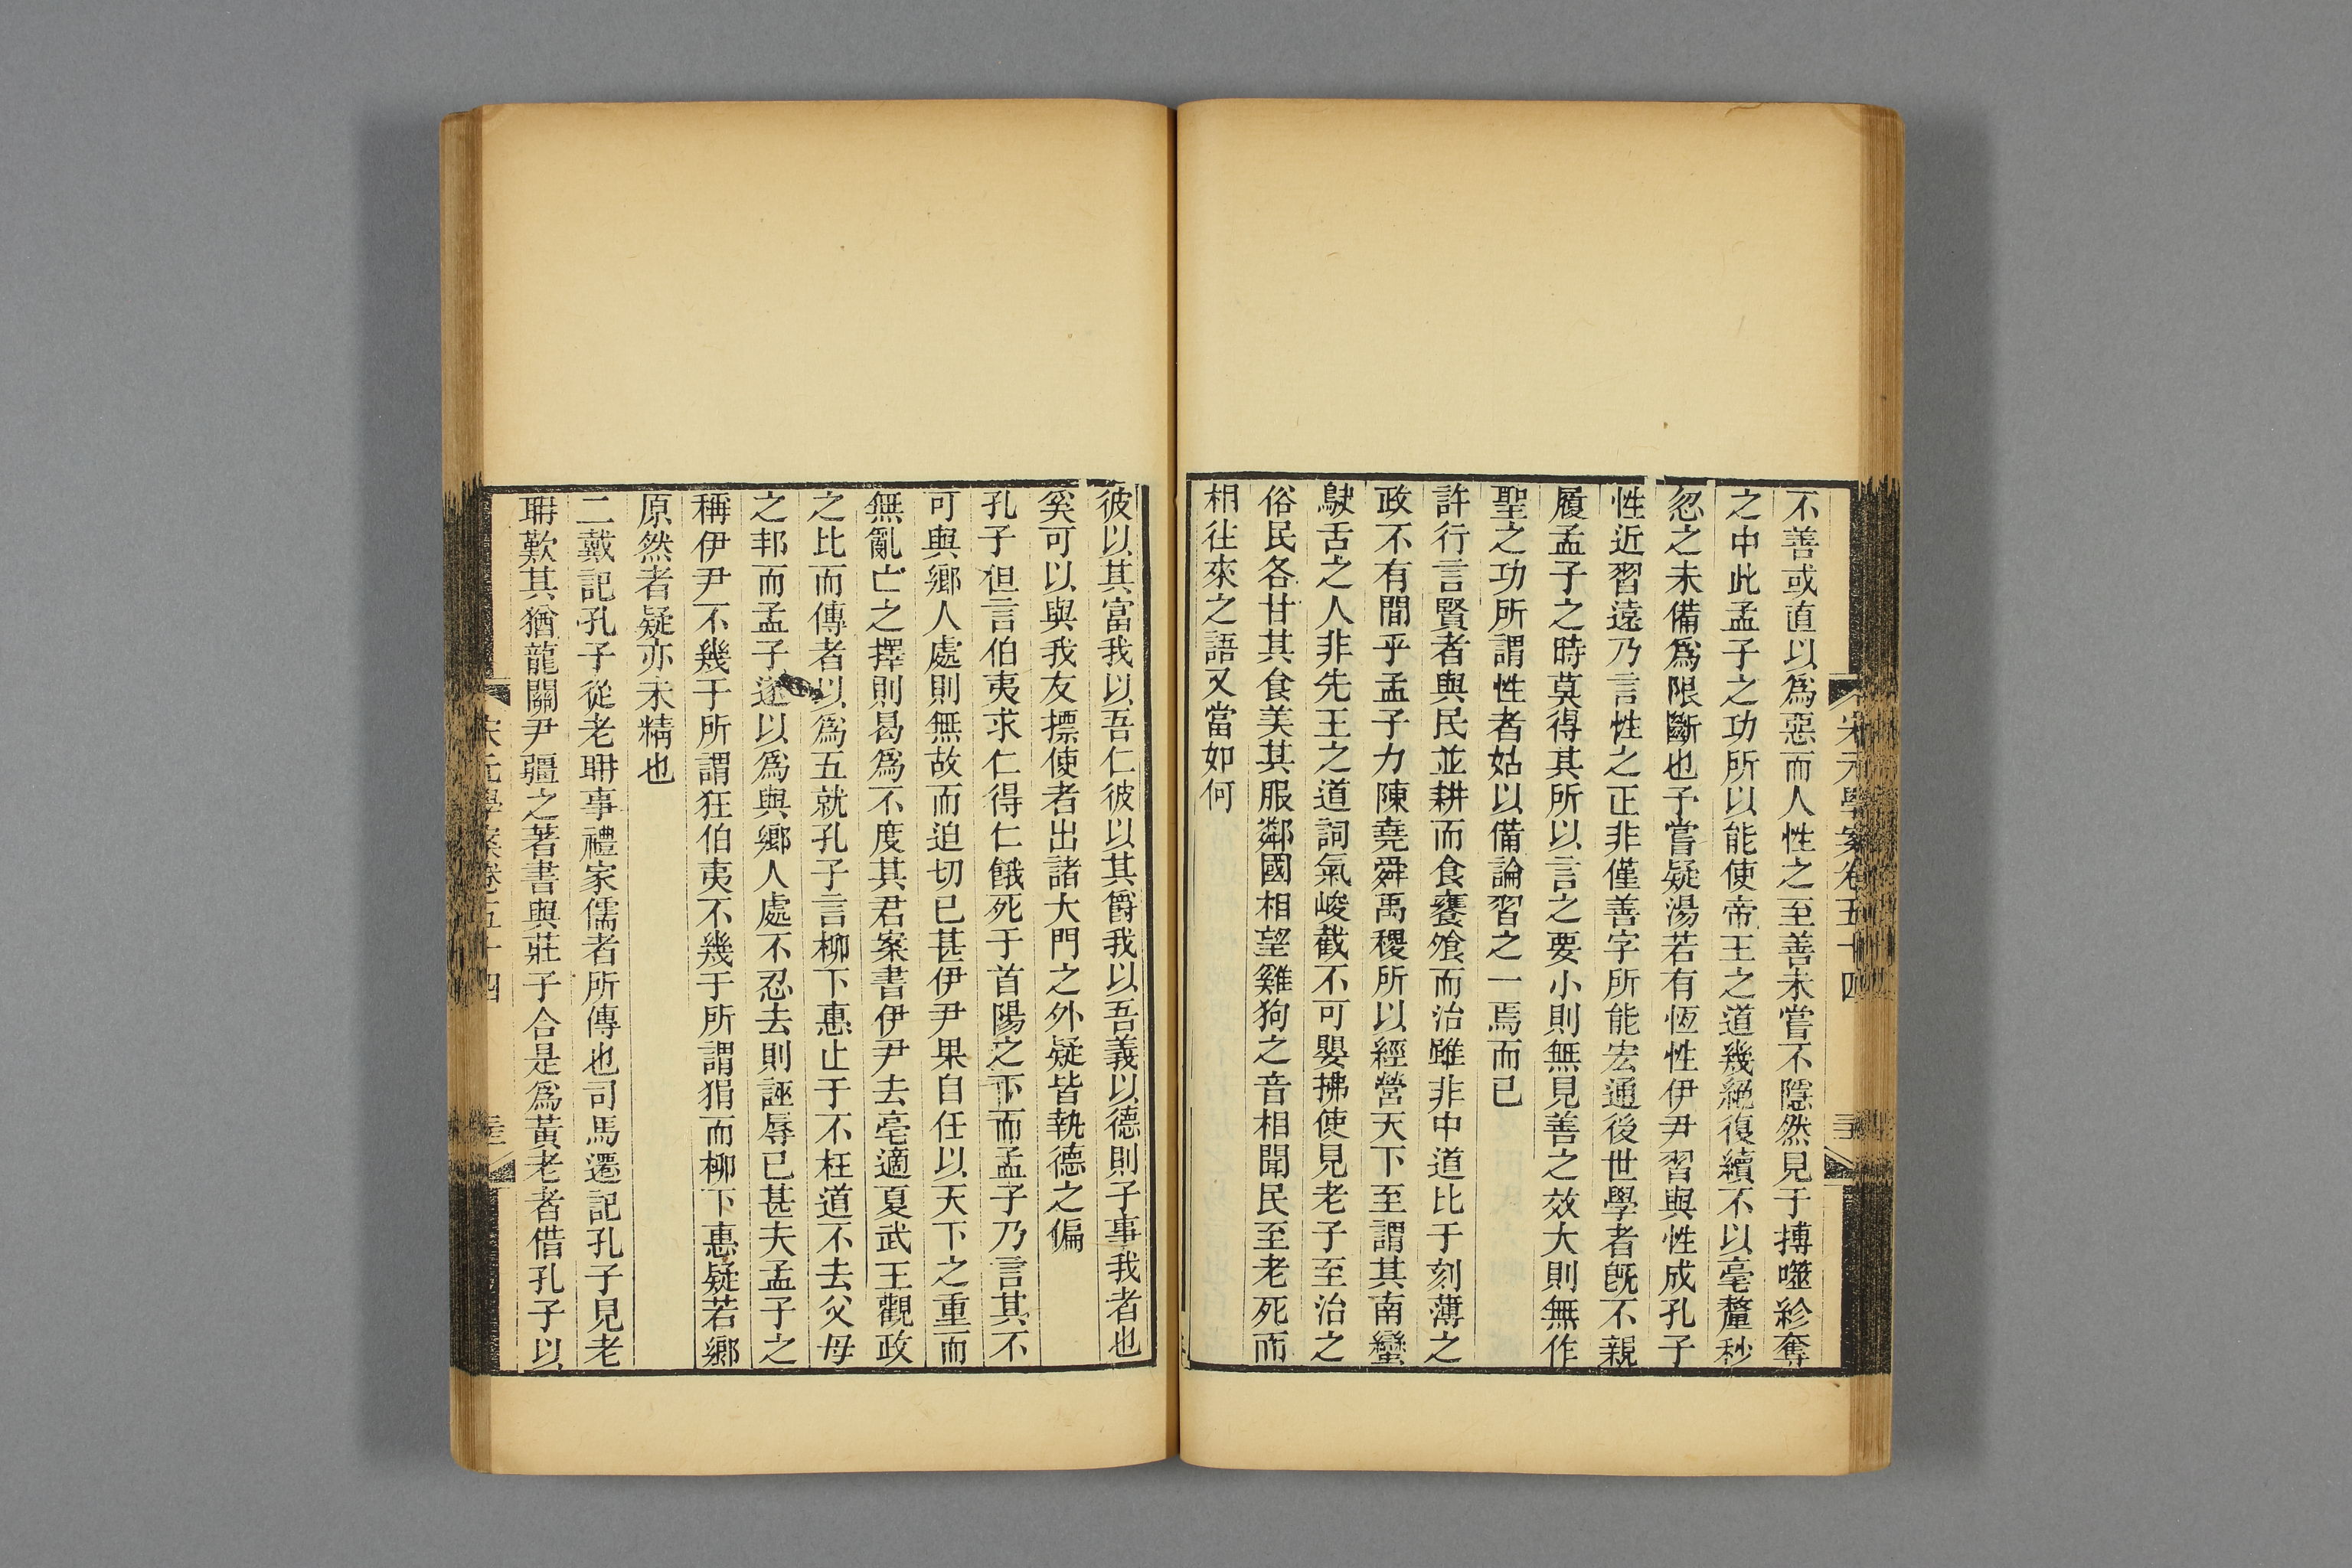 宋元學案卷五十四
不善或直以爲惡而人性之至善未嘗不隱然見于搏噬紾奪
之中此孟子之功所以能使帝王之道幾絕復續不以毫釐秒
忽之未備爲限斷也予嘗疑湯若有恆性伊尹習與性成孔子
性近習遠乃言性之正非僅善字所能宏通後世學者旣不親
履孟子之時莫得其所以言之要小則無見善之效大則無作
聖之功所謂性者姑以備論習之一焉而已
許行言賢者與民並耕而食饔飧而治雖非中道比于刻薄之
政不有間乎孟子力陳堯舜禹稷所以經營天下至謂其南蠻
鴃舌之人非先王之道詞氣峻截不可嬰拂使見老子至治之
俗民各甘其食美其服鄰國相望雞狗之音相聞民至老死而
相往來之語又當如何
彼以其富我以吾仁彼以其爵我以吾義以德則子事我者也
奚可以與我友摽使者出諸大門之外疑皆執德之偏
孔子但言伯夷求仁得仁餓死于首陽之下而孟子乃言其不
可與鄉人處則無故而迫切已甚伊尹果自任以天下之重而
無亂亡之擇則曷爲不度其君案書伊尹去亳適夏武王觀政
之比而傳者以爲五就孔子言柳下惠止于不枉道不去父母
之邦而孟子遂以爲與鄉人處不忍去則誣辱已甚夫孟子之
稱伊尹不幾于所謂狂伯夷不幾于所謂狷而柳下惠疑若鄉
原然者疑亦未精也
二戴記孔子從老聃事禮家儒者所傳也司馬遷記孔子見老
聃歎其猶龍關尹疆之著書與莊子合是爲黃老者借孔子以
宋元學案卷五十四